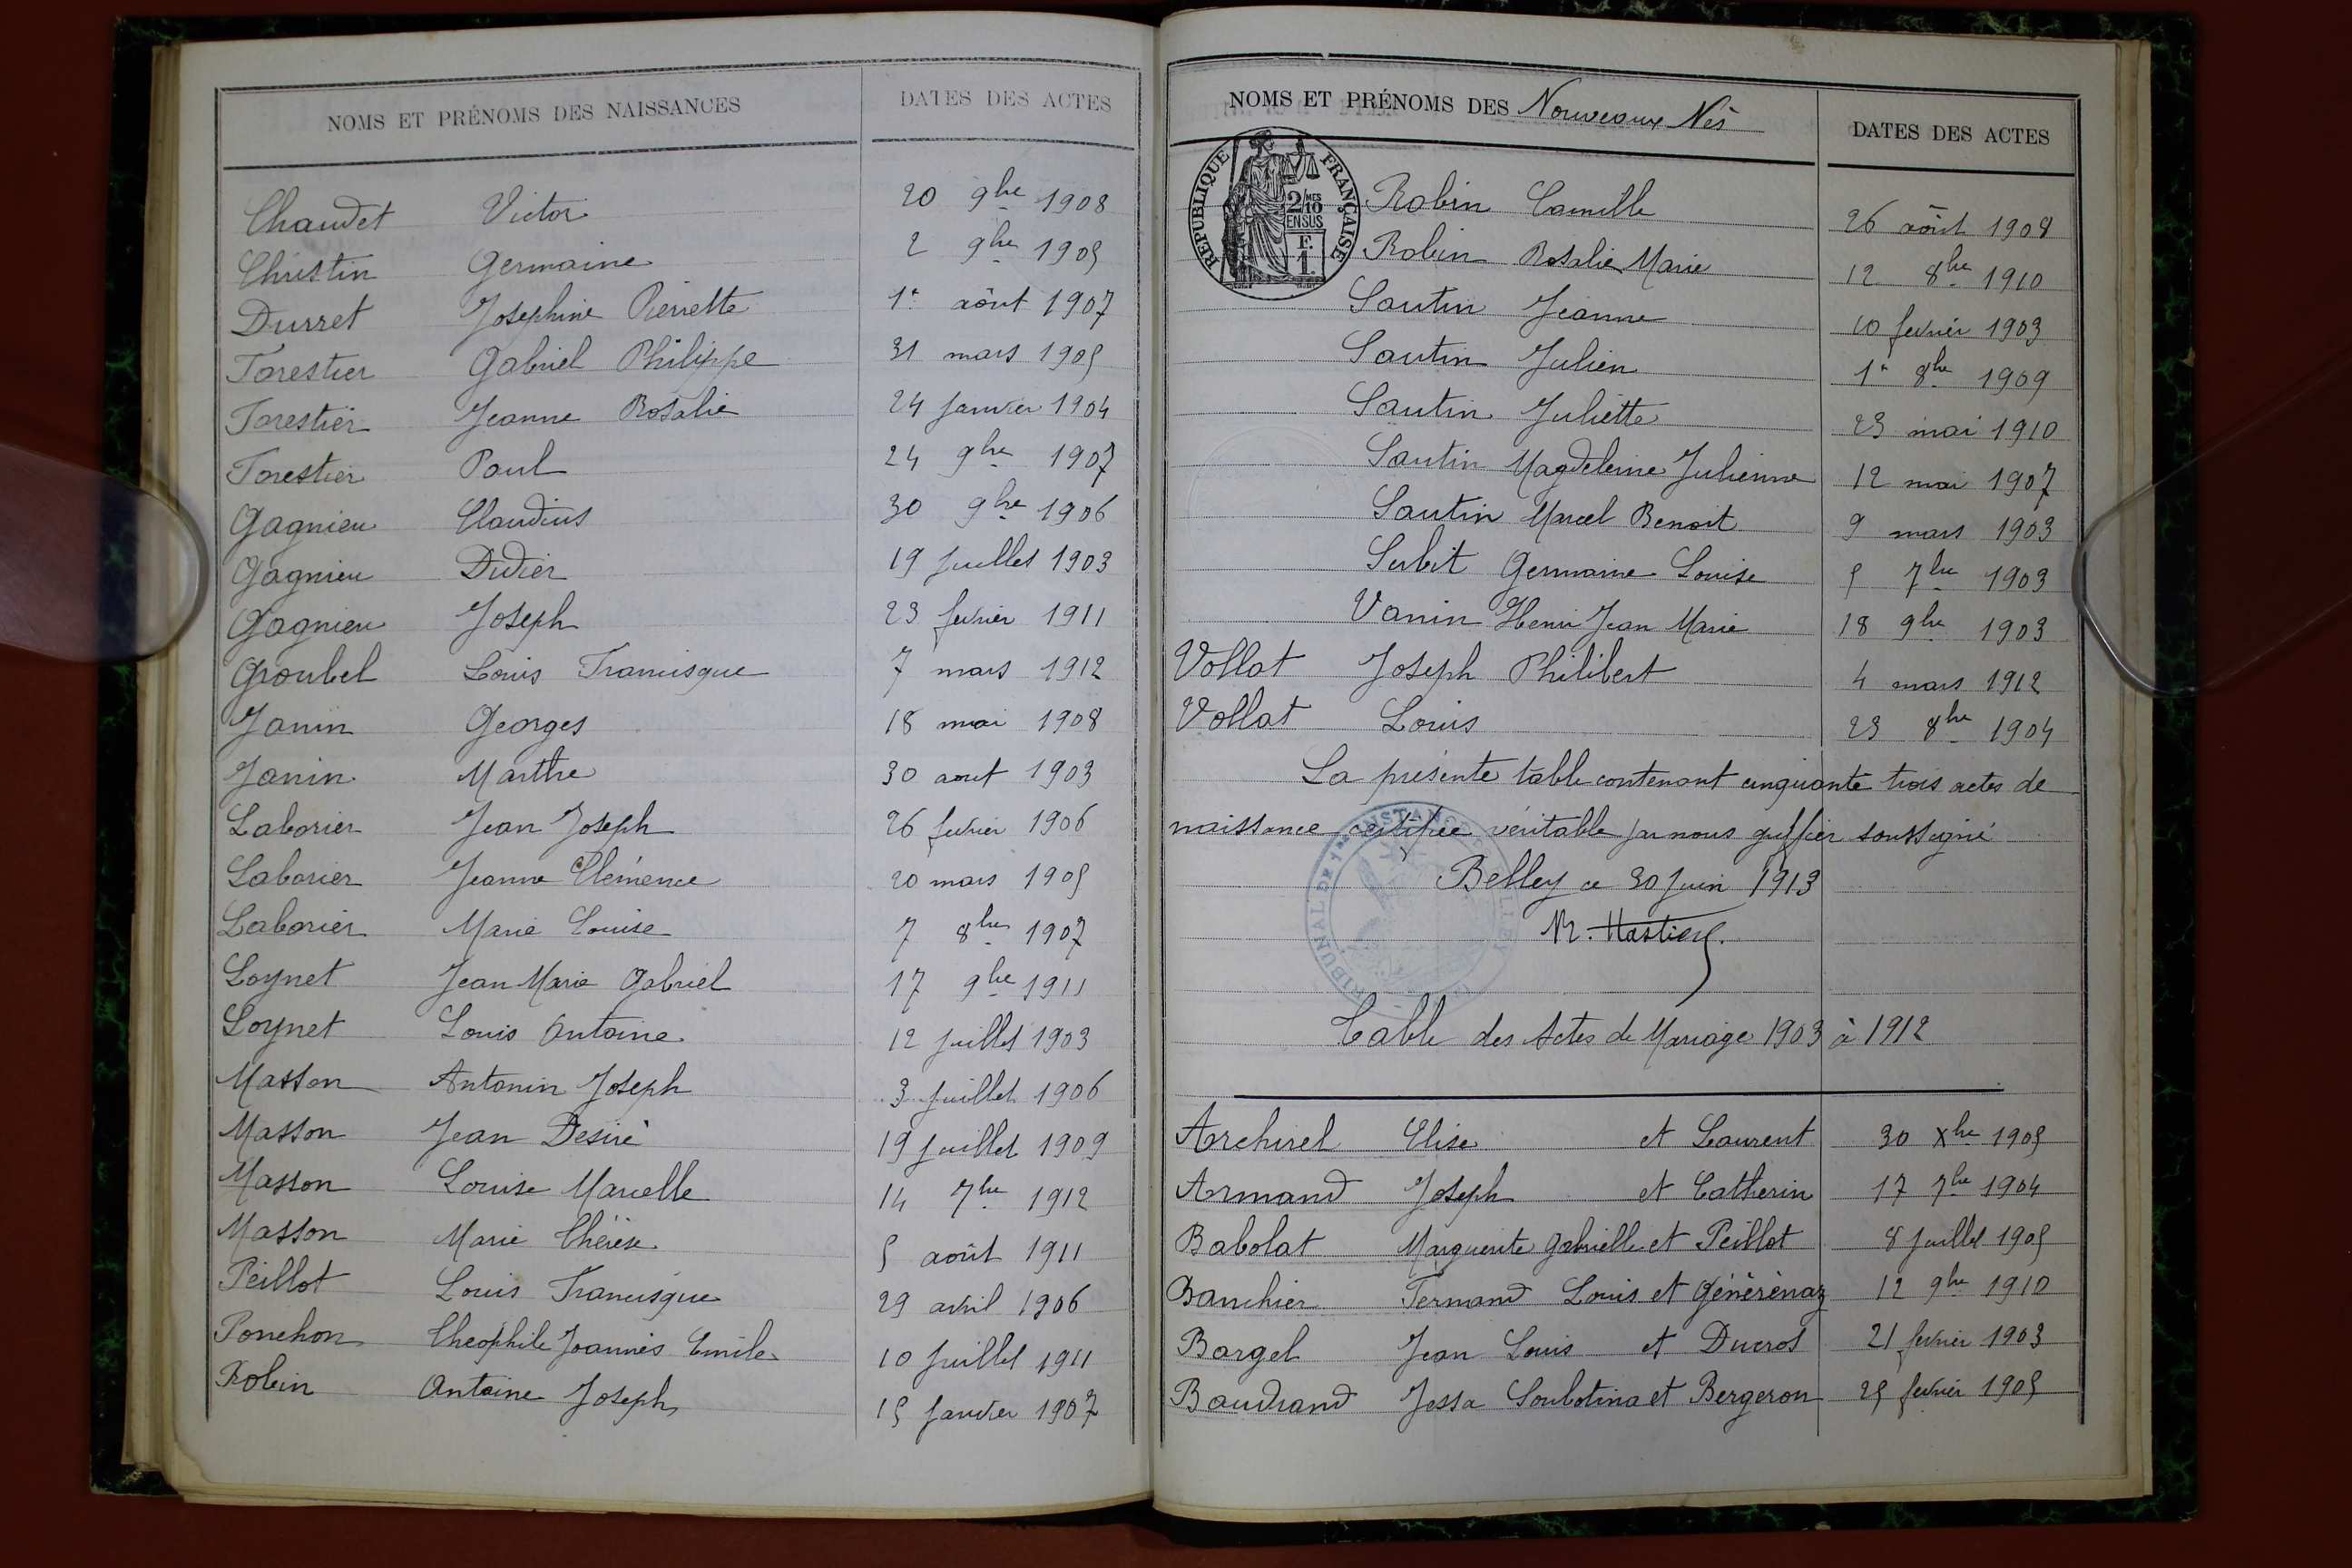 NOMS ET PRÉNOMS DES NAISSANCES DATES DES ACTES
Chaudet Victor 20 9bre 1908
Christin Germaine 2 9bre 1905
Durret Josephine Pierrette 1er août 1907
Forestier Gabriel Philippe 31 mars 1905
Forestier Jeanne Rosalie 24 janvier 1904
Forestier Paul 24 9bre 1907
Gagnieu Claudius 30 9bre 1906
Gagnieu Didier 19 juillet 1903
Gagnieu Joseph 23 fevrier 1911
Groubel Louis Francisque 7 mars 1912
Janin Georges 18 mai 1908
Janin Marthe 30 aout 1903
Laborier Jean Joseph 26 fevrier 1906
Laborier Jeanne Clémence 20 mars 1905
Laborier Marie Louise 7 8bre 1907
Loynet Jean Marie Gabriel 17 9bre 1911
Loynet Louis Antoine 12 juillet 1903
Masson Antonin Joseph 3 juillet 1906
Masson Jean Desiré 19 juillet 1909
Masson Louise Marcelle 14 7bre 1912
Masson Marie Thérèse 5 août 1911
Peillot Louis Francisque 29 avril 1906
Ponchon Theophile Joannès Emile 10 juillet 1911
Robin Antoine Joseph 15 janvier 1907
NOMS ET PRÉNOMS DES Nouveaux Nés DATES DES ACTES
RÉPUBLIQUE FRANÇAISE
2/10 MES
EN SUS
F.
1.
Robin Camille 26 août 1908
Robin Rosalie Marie 12 8bre 1910
Sautin Jeanne 10 fevrier 1903
Sautin Julien 1er 8bre 1909
Sautin Juliette 23 mai 1910
Sautin Magdeleine Julienne 12 mai 1907
Sautin Marcel Benoit 9 mars 1903
Subit Germaine Louise 5 7bre 1903
Vanin Henri Jean Marie 18 9bre 1903
Vollat Joseph Philibert 4 mars 1912
Vollat Louis 23 8bre 1904
La présente table contenant cinquante trois actes de
naissance certifiée véritable par nous greffier soussigné
Belley ce 30 Juin 1913
TRIBUNAL DE 1re INSTANCE BELLEY
Table des Actes de Mariage 1903 à 1912
Archirel Elise et Laurent 30 Xbre 1905
Armand Joseph et Catherin 17 7bre 1904
Babolat Marguerite Gabrielle et Peillot 8 juillet 1905
Banchier Fernand Louis et Génèrénaz 12 9bre 1910
Bargel Jean Louis et Ducros 21 fevrier 1903
Baudrand Jessa Soubotina et Bergeron 25 fevrier 1905